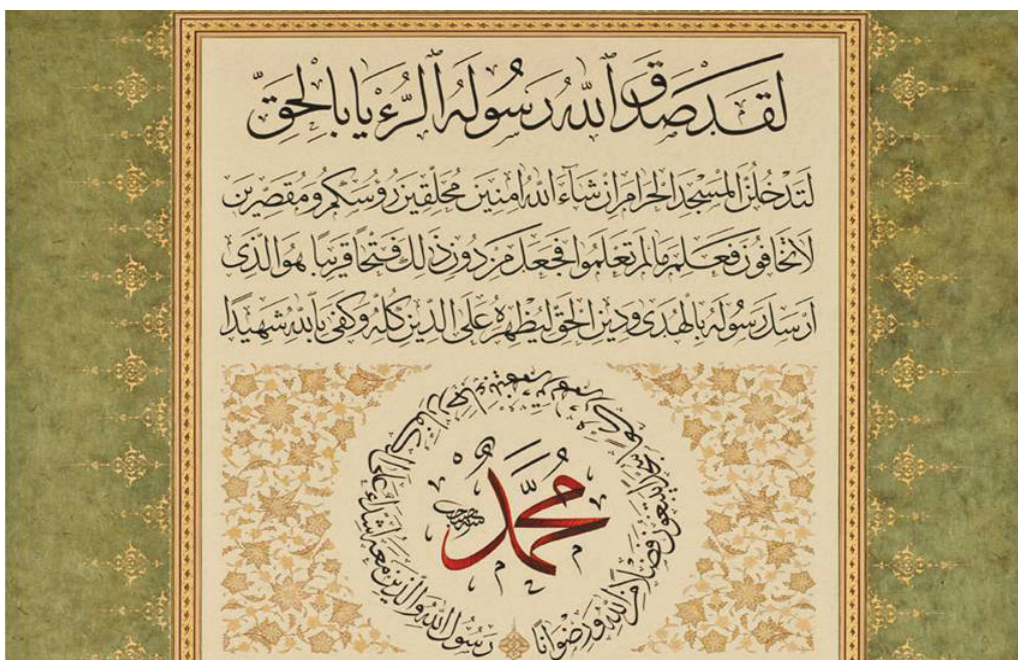 لَقَدْ صَدَقَ ٱللّٰهُ رَسُولَهُ ٱلرُّءْيَا بِالْحَقِّ
لَتَدْخُلُنَّ الْمَسْجِدَ الْحَرَامَ اِنْ شَٓاءَ اللّٰهُ اٰمِنِينَ مُحَلِّقِينَ رُؤُسَكُمْ وَمُقَصِّرِينَ
لَا تَخَافُونَ فَعَلِمَ مَا لَمْ تَعْلَمُوا فَجَعَلَ مِنْ دُونِ ذٰلِكَ فَتْحًا قَرِيبًا هُوَ الَّذِى
اَرْسَلَ رَسُولَهُ بِالْهُدٰى وَدِينِ الْحَقِّ لِيُظْهِرَهُ عَلَى الدِّينِ كُلِّهِ وَكَفٰى بِاللّٰهِ شَهِيدًا
مُحَمَّدٌ
رَسُولُ اللّٰهِ وَالَّذِينَ مَعَهُ اَشِدَّٓاءُ عَلَى الْكُفَّارِ رُحَمَٓاءُ بَيْنَهُمْ تَرٰيهُمْ رُكَّعًا سُجَّدًا يَبْتَغُونَ فَضْلًا مِنَ اللّٰهِ وَرِضْوَانًا